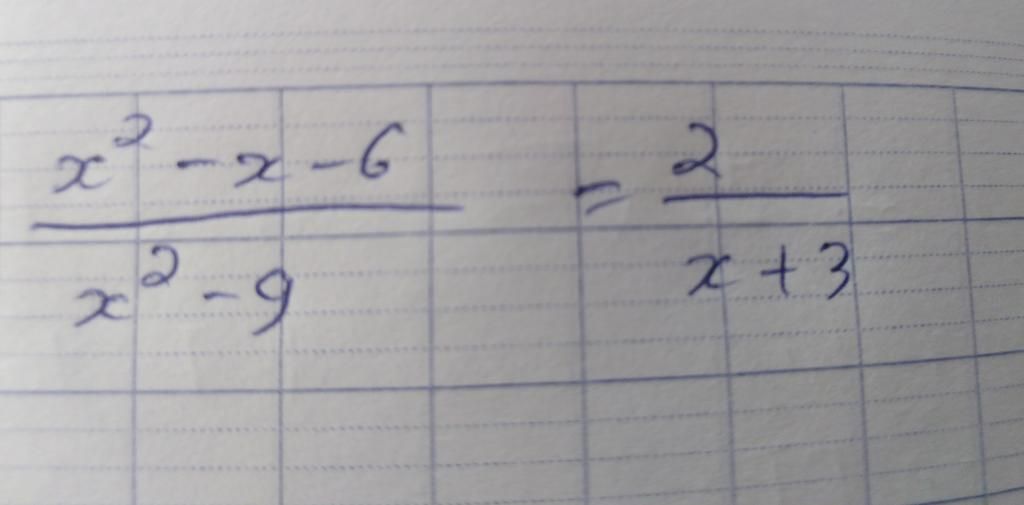 x² - x - 6 / x² - 9 = 2 / x + 3